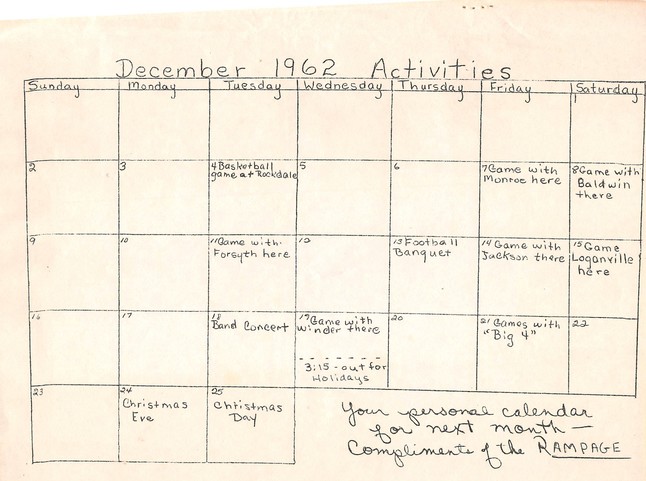 December 1962 Activities
Sunday Monday Tuesday Wednesday Thursday Friday Saturday
1
2 3 4 Basketball game at Rockdale 5 6 7 Game with Monroe here 8 Game with Baldwin there
9 10 11 Game with Forsyth here 12 13 Football Banquet 14 Game with Jackson there 15 Game Loganville here
16 17 18 Band Concert 19 Game with Winder there 20 21 Games with "Big 4" 22
3:15 - out for Holidays
23 24 Christmas Eve 25 Christmas Day
Your personal calendar
for next month —
Compliments of the RAMPAGE